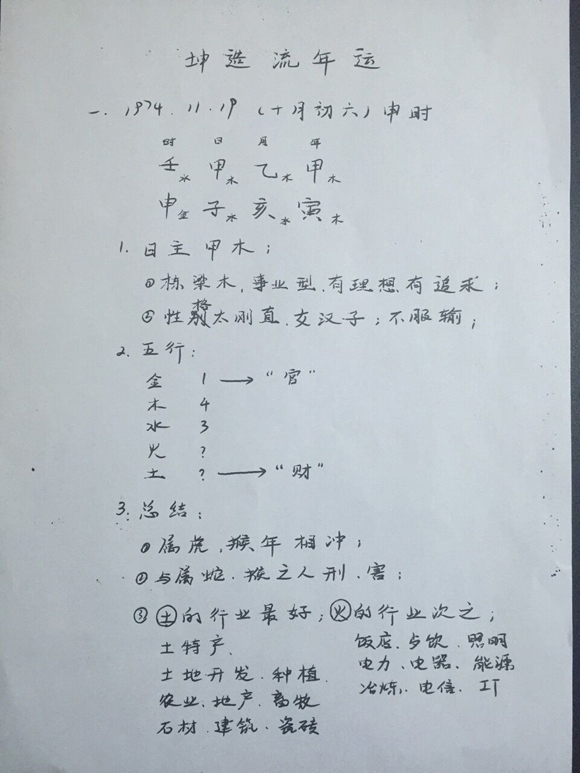 坤造流年运
一. 1974.11.19 (十月初六) 申时
时 日 月 年
壬水 甲木 乙木 甲木
申金 子水 亥水 寅木
1. 日主甲木;
① 栋梁木, 事业型. 有理想有追求;
② 性格太刚直. 女汉子; 不服输;
2. 五行:
金 1 → "官"
木 4
水 3
火 ?
土 ? → "财"
3. 总结:
① 属虎, 猴年相冲;
② 与属蛇. 猴之人刑. 害;
③ 土的行业最好; 火的行业次之;
土特产. 饭店. 与饮. 照明
土地开发. 种植. 电力、电器、能源
农业、地产、畜牧 冶炼、电信. IT
石材. 建筑. 瓷砖